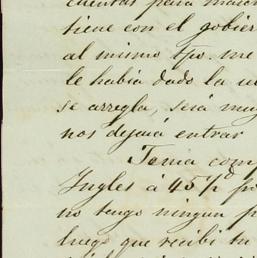 cuentas para
tiene con el gobier
al mismo tpo. me
le habia dado la
se arregla, sera muy
nos dejará entrar
Tenia com
Ingles á 45
no tengo ningun p
luego que recibi tu